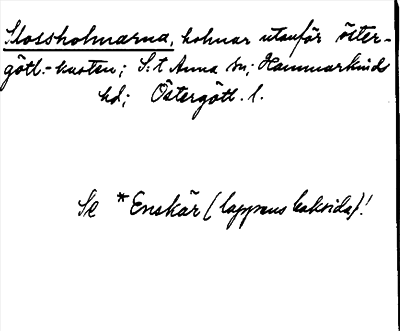 Slossholmarna, holmar utanför öster-
götl.-kusten; S:t Anna sn; Hammarkinds
hd; Östergötl. l.
Se *Enskär (lappens baksida)!